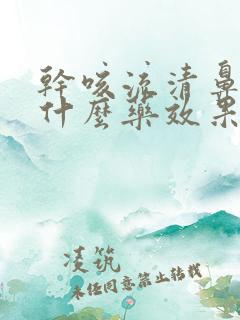 幹咳流清鼻
什麽藥效果
凌筑
未经同意禁止转载